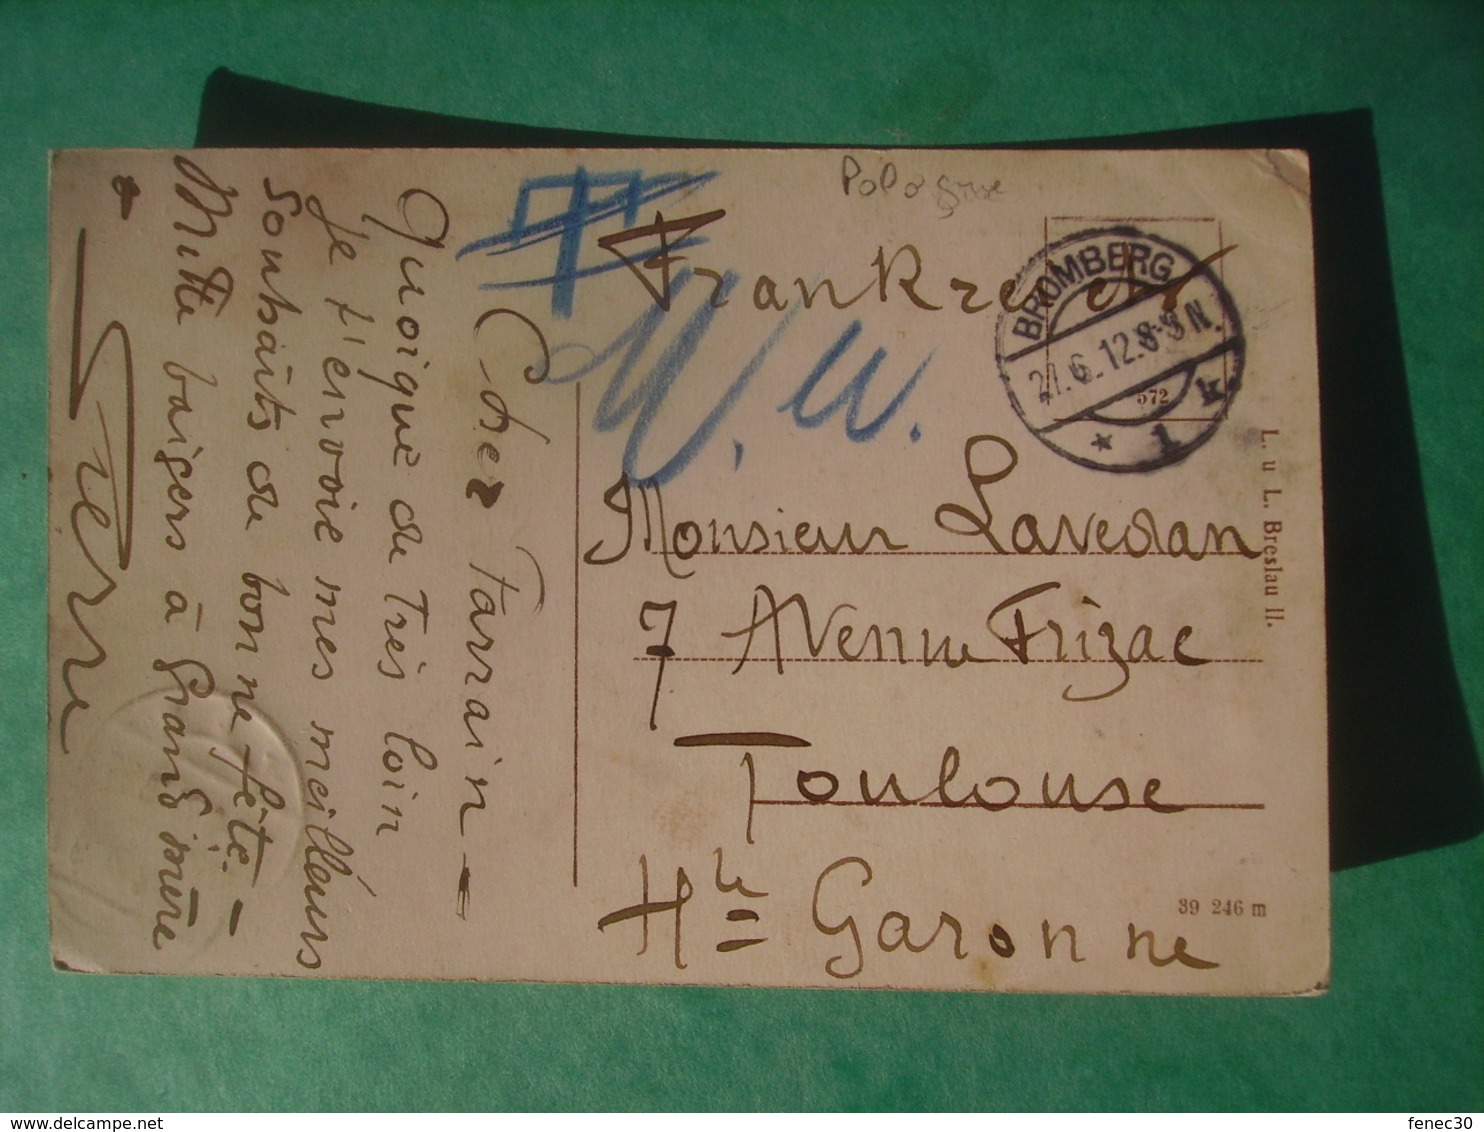 Pologne
Frankreich
BROMBERG
21.6.12.8-9N.
* 1 k
572
W. w.
Monsieur Lavedan
7 Avenue Frizac
Toulouse
Hte Garonne
L. u L. Breslau II.
39 246 m
Cher Parrain -
Quoique de très loin
je t'envoie mes meilleurs
souhaits de bonne fête. -
Mille baisers à Grand'mère
fenec30